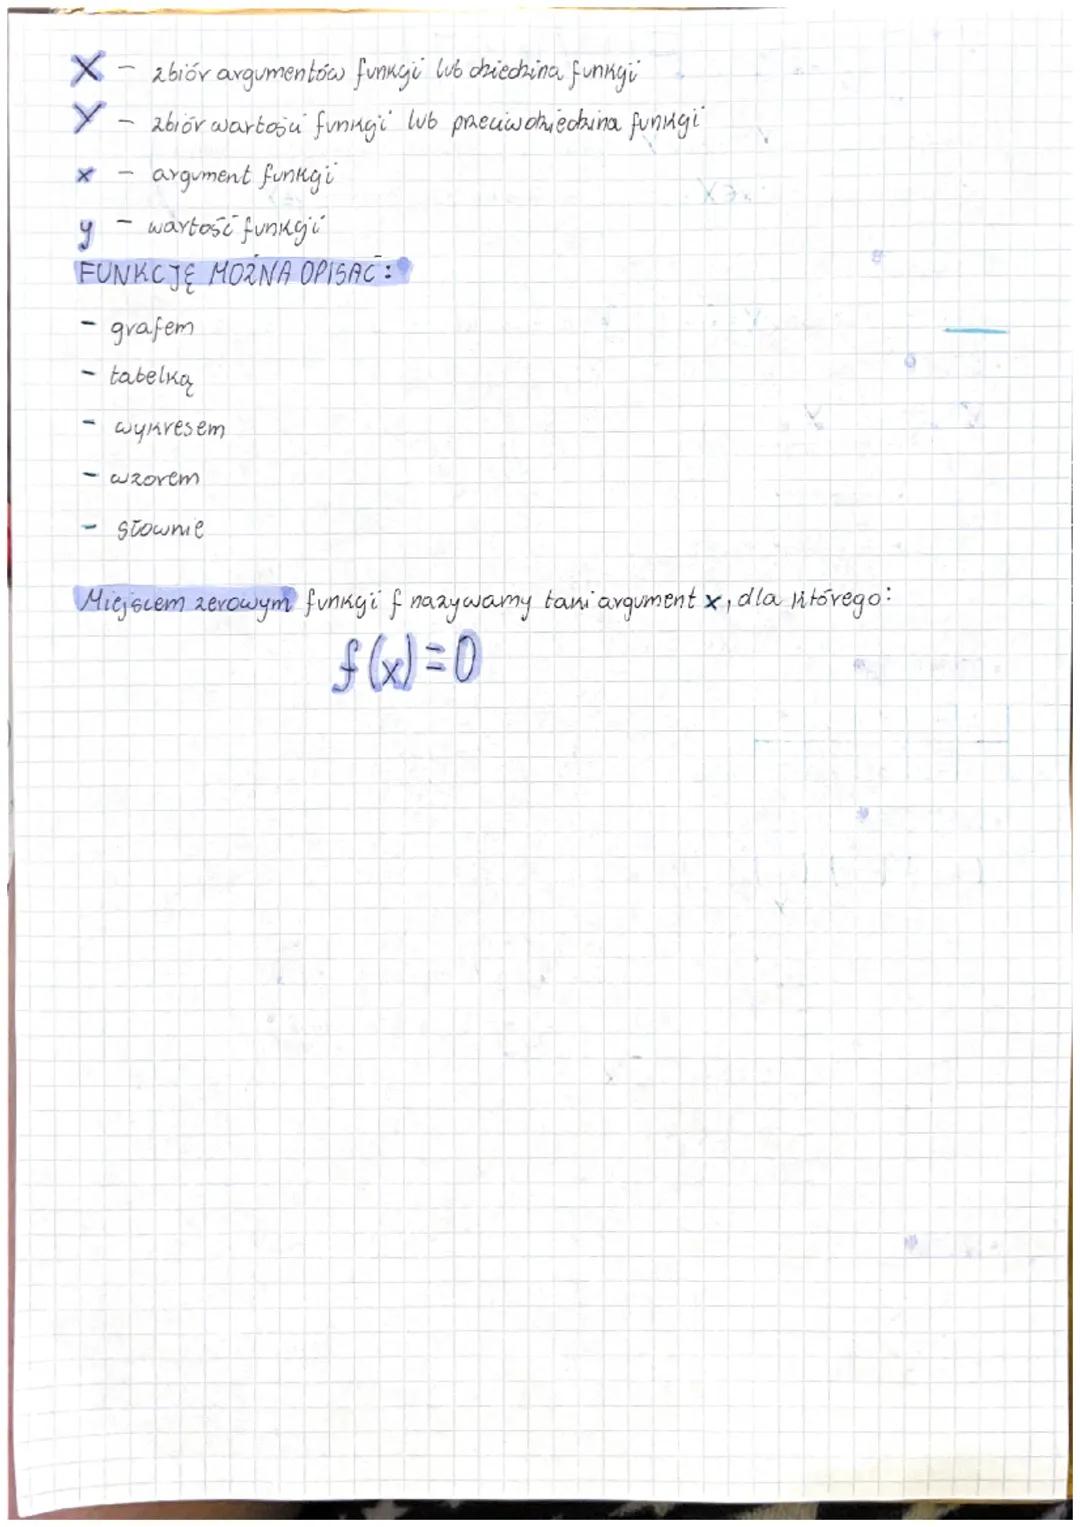 X - zbiór argumentów funkcji lub dziedzina funkcji
Y - zbiór wartości funkcji lub przeciwdziedzina funkcji
x - argument funkcji
y - wartość funkcji
FUNKCJĘ MOŻNA OPISAĆ:
- grafem
- tabelką
- wykresem
- wzorem
- słownie
Miejscem zerowym funkcji f nazywamy taki argument x, dla którego:
f(x)=0